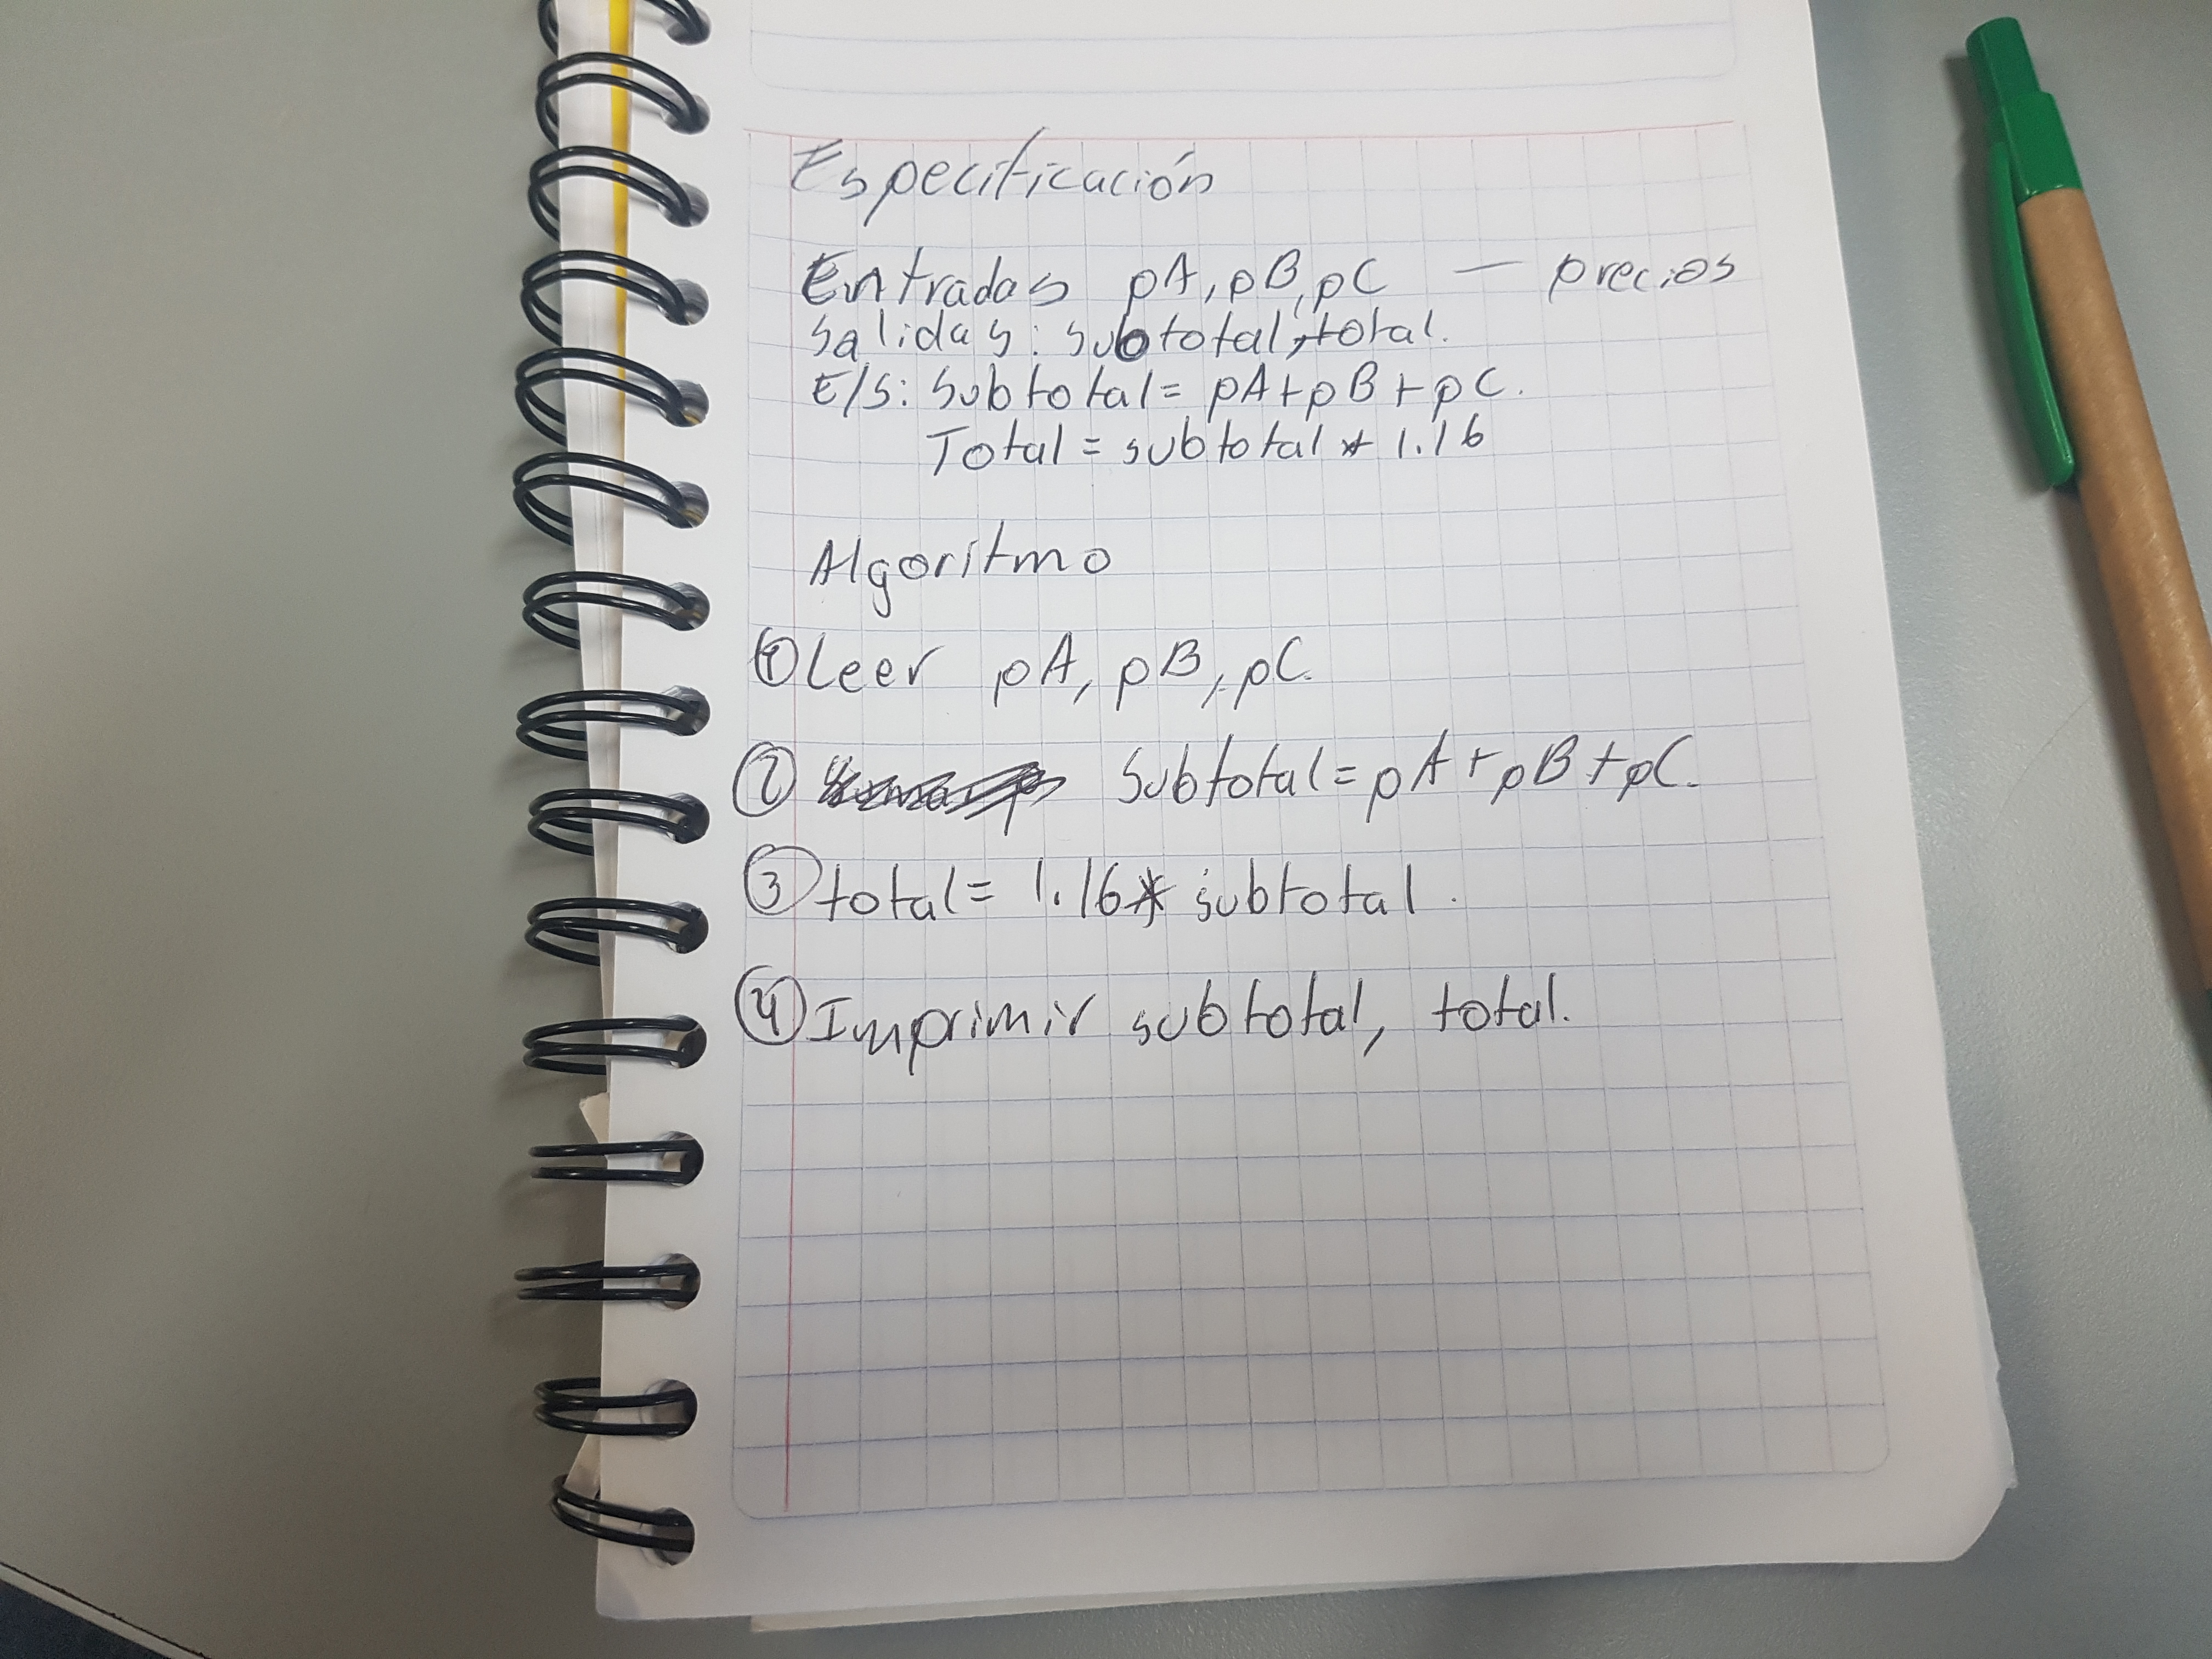 Especificación
Entradas pA, pB, pC — precios
Salidas: subtotal, total.
E/S: subtotal = pA + pB + pC.
Total = subtotal * 1.16
Algoritmo
① Leer pA, pB, pC.
② subtotal = pA + pB + pC.
③ total = 1.16 * subtotal.
④ Imprimir subtotal, total.